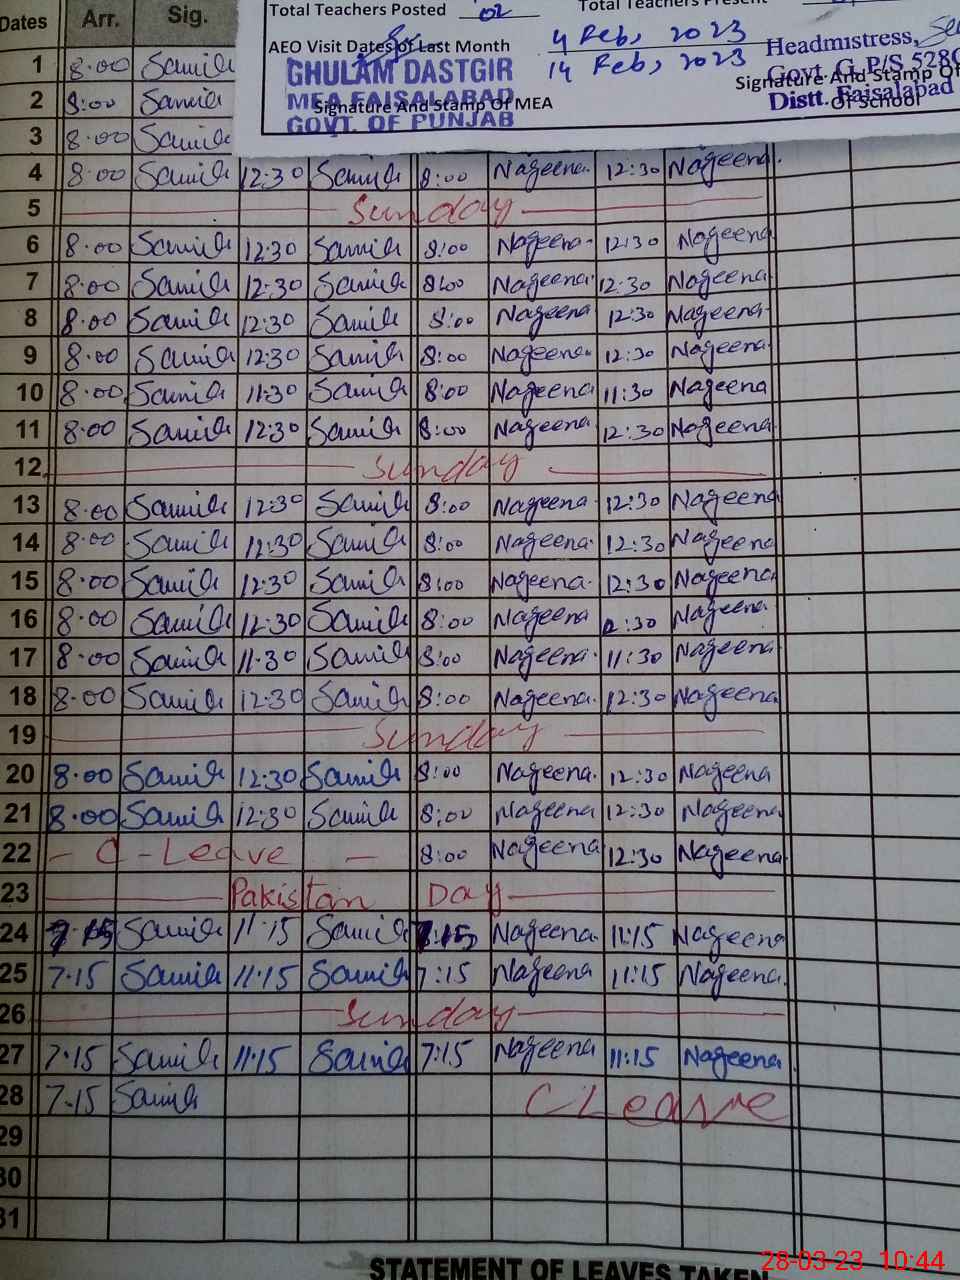 Total Teachers Posted 02 Total Teachers Present
AEO Visit Dates of Last Month 4 Feb, 2023
14 Feb, 2023
Headmistress,
GHULAM DASTGIR
MEA FAISALABAD
GOVT. OF PUNJAB
Signature And Stamp Of MEA
Govt. G.P/S 528
Distt. Faisalabad
Signature And Stamp Of
Of School
Dates Arr. Sig.
1 8:00 Samia
2 8:00 Samia
3 8:00 Samia
4 8:00 Samia 12:30 Samia 8:00 Nageena. 12:30 Nageena.
5 Sunday
6 8:00 Samia 12:30 Samia 8:00 Nageena. 12:30 Nageena
7 8:00 Samia 12:30 Samia 8:00 Nageena. 12:30 Nageena
8 8:00 Samia 12:30 Samia 8:00 Nageena 12:30 Nageena.
9 8:00 Samia 12:30 Samia 8:00 Nageena. 12:30 Nageena.
10 8:00 Samia 11:30 Samia 8:00 Nageena 11:30 Nageena
11 8:00 Samia 12:30 Samia 8:00 Nageena 12:30 Nageena
12 Sunday
13 8:00 Samia 12:30 Samia 8:00 Nageena. 12:30 Nageena
14 8:00 Samia 12:30 Samia 8:00 Nageena. 12:30 Nageena
15 8:00 Samia 12:30 Samia 8:00 Nageena. 12:30 Nageena
16 8:00 Samia 12:30 Samia 8:00 Nageena 12:30 Nageena
17 8:00 Samia 11:30 Samia 8:00 Nageena. 11:30 Nageena
18 8:00 Samia 12:30 Samia 8:00 Nageena. 12:30 Nageena
19 Sunday
20 8:00 Samia 12:30 Samia 8:00 Nageena. 12:30 Nageena
21 8:00 Samia 12:30 Samia 8:00 Nageena 12:30 Nageena
22 - C-Leave - 8:00 Nageena 12:30 Nageena
23 Pakistan Day
24 7:15 Samia 11:15 Samia 7:15 Nageena. 11:15 Nageena
25 7:15 Samia 11:15 Samia 7:15 Nageena 11:15 Nageena.
26 Sunday
27 7:15 Samia 11:15 Samia 7:15 Nageena 11:15 Nageena
28 7:15 Samia C Leave
29
30
31
STATEMENT OF LEAVES TAKEN
28-03-23 10:44